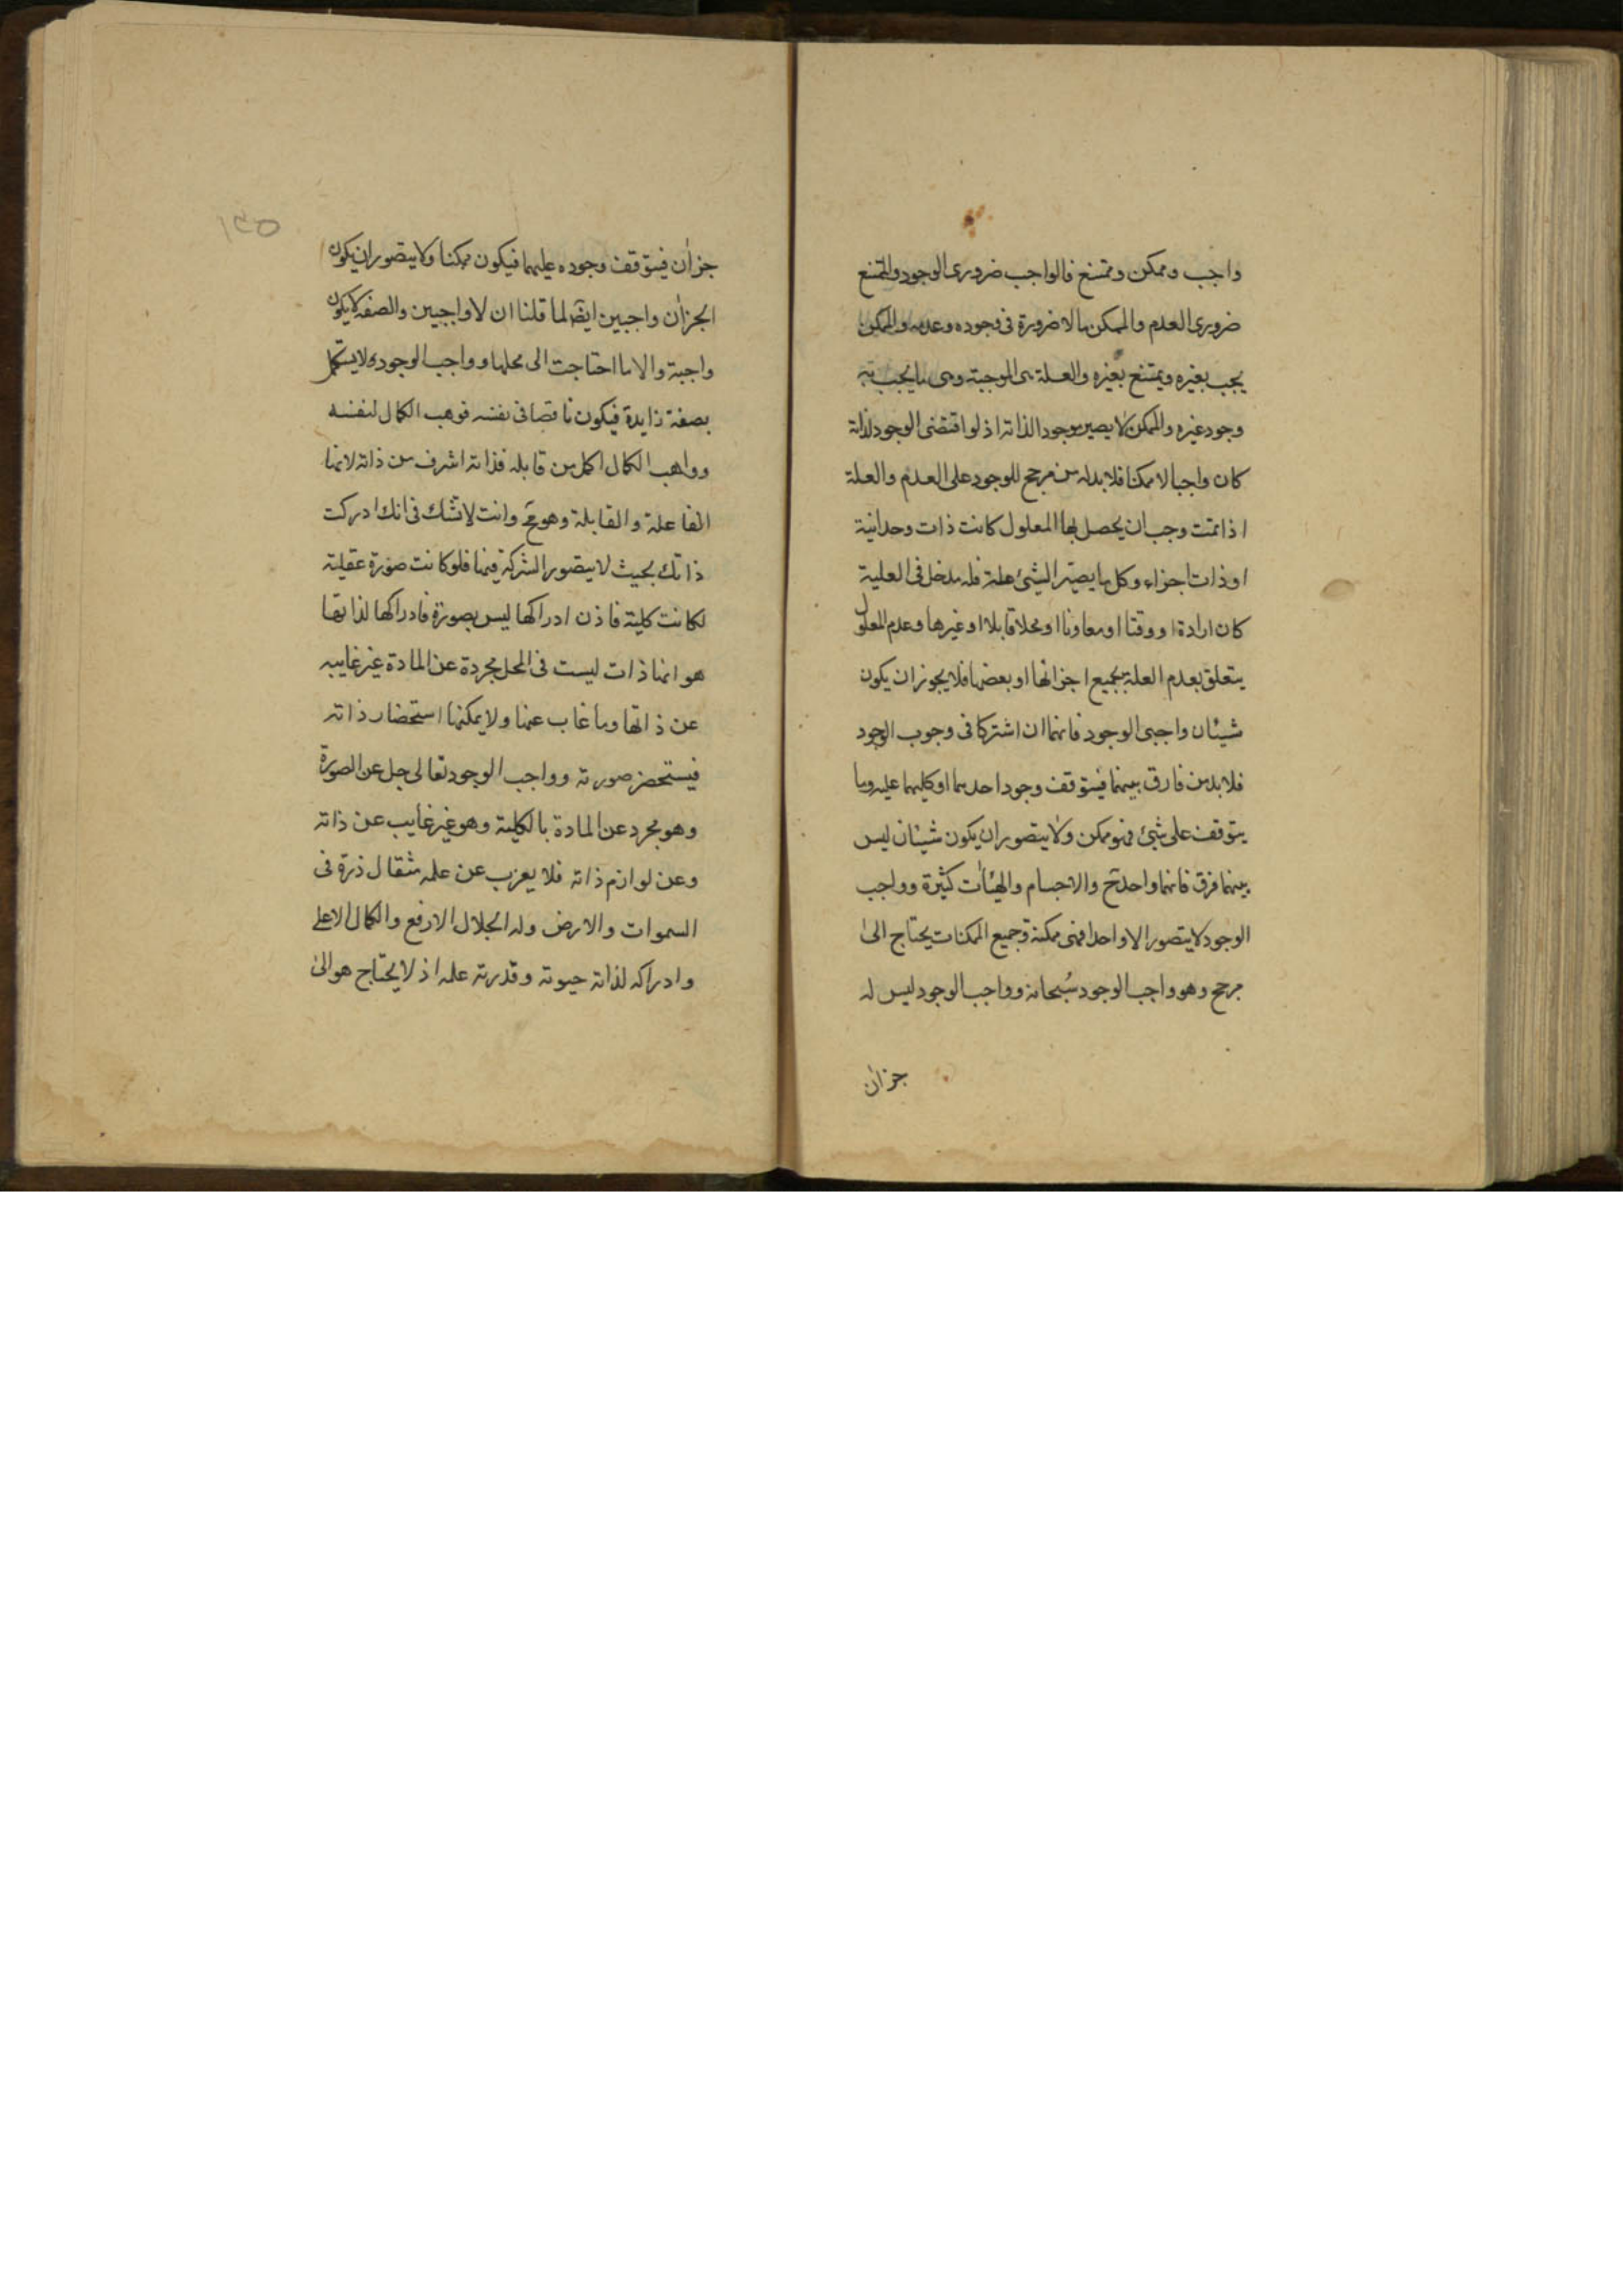 واجب وممكن وممتنع فالواجب ضروري الوجود والممتنع
ضروري العدم والممكن ما لا ضرورة في وجوده وعدمه والممكن
يجب بغيره ويمتنع بغيره والعلة هي الموجبة وهي ما يجب به
وجود غيره والممكن لا يصير موجودا لذاته اذ لو اقتضى الوجود لذاته
كان واجبا لا ممكنا فلا بد له من مرجح للوجود على العدم والعلة
اذا تمت وجب ان يحصل بها المعلول كانت ذات وحدانية
او ذات اجزاء وكل ما يصير الشيئ علة فله مدخل في العلية
كان ارادة او وقتا او معاونا او محلا قابلا او غيرها وعدم المعلول
يتعلق بعدم العلة بجميع اجزائها او بعضها فلا يجوز ان يكون
شيئان واجبي الوجود فانهما ان اشتركا في وجوب الوجود
فلا بد من فارق بينهما فيتوقف وجود احدهما او كليهما عليه وما
يتوقف على شيئ فهو ممكن ولا يتصور ان يكون شيئان ليس
بينهما فرق فانهما واحد ح والاجسام والهيئات كثيرة وواجب
الوجود لا يتصور الا واحدا فهي ممكنة وجميع الممكنات يحتاج الى
مرجح وهو واجب الوجود سبحانه وواجب الوجود ليس له
جزان
١٣٥
جزان فيتوقف وجوده عليهما فيكون ممكنا ولا يتصور ان يكون
الجزان واجبين ايضا لما قلنا ان لا واجبين والصفة لا يكون
واجبة والا ما احتاجت الى محلها وواجب الوجود لا يستكمل
بصفة زايدة فيكون ناقصا في نفسه فوهب الكمال لنفسه
وواهب الكمال اكمل من قابله فذاته اشرف من ذاته لانها
الفاعلة والقابلة وهو مح وانت لا تشك في انك ادركت
ذاتك بحيث لا يتصور الشركة فيها فلو كانت صورة عقلية
لكانت كلية فاذن ادراكها ليس بصورة فادراكها لذاتها
هو انها ذات ليست في المحل مجردة عن المادة غير غايبه
عن ذاتها وما غاب عنها ولا يمكنها استحضار ذاته
فيستحضر صورته وواجب الوجود تعالى جل عن الصورة
وهو مجرد عن المادة بالكلية وهو غير غايب عن ذاته
وعن لوازم ذاته فلا يعزب عن علمه مثقال ذرة في
السموات والارض وله الجلال الارفع والكمال الاعلى
وادراكه لذاته حيوته وقدرته علمه اذ لا يحتاج هو الى